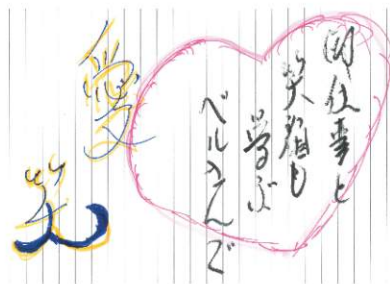 図仕事と
笑顔も
学ぶ
ベルスんで
愛
笑